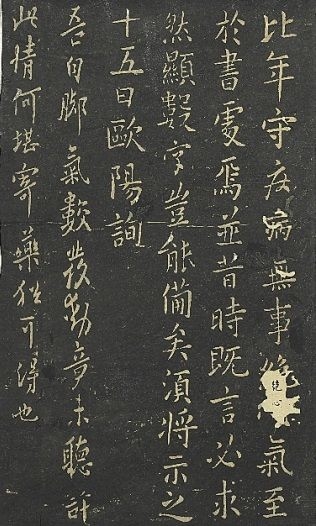 比年守疾病無事絶心氣至
於書處焉並昔時既言必求
然顯數字豈能備矣須將示之
十五日歐陽詢
吾自脚氣數發動竟未聽許
此情何堪寄藥猶可得也